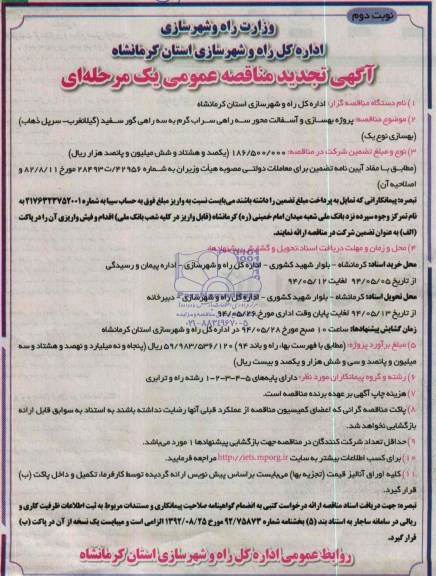 نوبت دوم
وزارت راه و شهرسازی
اداره کل راه و شهرسازی استان کرمانشاه
آگهی تجدید مناقصه عمومی یک مرحله‌ای
۱) نام دستگاه مناقصه گزار: اداره کل راه و شهرسازی استان کرمانشاه
۲) موضوع مناقصه: پروژه بهسازی و آسفالت محور سه راهی سراب گرم به سه راهی گور سفید (گیلانغرب- سرپل ذهاب)
(بهسازی نوع یک)
۳) نوع و مبلغ تضمین شرکت در مناقصه: ۱۸۶/۵۰۰/۰۰۰ (یکصد و هشتاد و شش میلیون و پانصد هزار ریال)
(مطابق با مفاد آیین نامه تضمین برای معاملات دولتی مصوبه هیأت وزیران به شماره ۴۲۹۵۶/ت۲۸۴۹۳ مورخ ۸۲/۸/۱۱ و
اصلاحیه آن)
تبصره: پیمانکارانی که تمایل به پرداخت مبلغ تضمین را داشته باشند می‌بایست نسبت به واریز مبلغ فوق به حساب سیبا به شماره ۲۱۷۶۴۴۳۷۵۲۰۰۱ به
نام تمرکز وجوه سپرده نزد بانک ملی شعبه میدان امام خمینی (ره) کرمانشاه (قابل واریز در کلیه شعب بانک ملی) اقدام و فیش واریزی آن را در پاکت
(الف) به عنوان تضمین شرکت در مناقصه ارائه نمایند.
۴) محل و زمان و مهلت دریافت اسناد، تحویل و گشایش پیشنهادها:
محل خرید اسناد: کرمانشاه - بلوار شهید کشوری - اداره کل راه و شهرسازی - اداره پیمان و رسیدگی
از تاریخ ۹۴/۰۵/۰۵ لغایت ۹۴/۰۵/۱۲
محل تحویل اسناد: کرمانشاه - بلوار شهید کشوری - اداره کل راه و شهرسازی - دبیرخانه
از تاریخ ۹۴/۰۵/۱۳ لغایت پایان وقت اداری مورخ ۹۴/۰۵/۲۶
۰۲۱-۸۸۳۴۹۶۷۰-۵
زمان گشایش پیشنهادها: ساعت ۱۰ صبح مورخ ۹۴/۰۵/۲۸ در اداره کل راه و شهرسازی استان کرمانشاه
۵) مبلغ برآورد پروژه: (مطابق با فهرست بهاء راه و باند ۹۴) ۵۹/۹۸۳/۵۳۶/۱۲۰ ریال (پنجاه و نه میلیارد و نهصد و هشتاد و سه
میلیون و پانصد و سی و شش هزار و یکصد و بیست ریال)
۶) رشته و گروه پیمانکاران مورد نظر: دارای پایه‌های ۵-۴-۳-۲-۱ رشته راه و ترابری
۷) هزینه چاپ آگهی بر عهده برنده مناقصه است.
۸) پاکت مناقصه گرانی که اعضای کمیسیون مناقصه از عملکرد قبلی آنها رضایت نداشته باشند به استناد به سوابق قابل ارائه
بازگشایی نخواهد شد.
۹) حداقل تعداد شرکت کنندگان در مناقصه جهت بازگشایی پیشنهادها ۱ مورد می‌باشد.
۱۰) برای کسب اطلاعات بیشتر به سایت http://iets.mporg.ir مراجعه فرمایید.
۱۱) کلیه اوراق آنالیز قیمت (تجزیه بها) می‌بایست براساس پیش نویس ارائه گردیده توسط کارفرما، تکمیل و داخل پاکت (ب)
قرار گیرد.
تبصره: جهت دریافت اسناد مناقصه ارائه درخواست کتبی به انضمام گواهینامه صلاحیت پیمانکاری و مستندات مربوط به ثبت اطلاعات ظرفیت کاری و
ریالی در سامانه ساجار به استناد بند (۵) بخشنامه شماره ۹۲/۷۵۸۷۳ مورخ ۱۳۹۲/۰۸/۲۵ الزامی است و میبایست یک نسخه از آن در پاکت (ب)
قرار گیرد.
روابط عمومی اداره کل راه و شهرسازی استان کرمانشاه